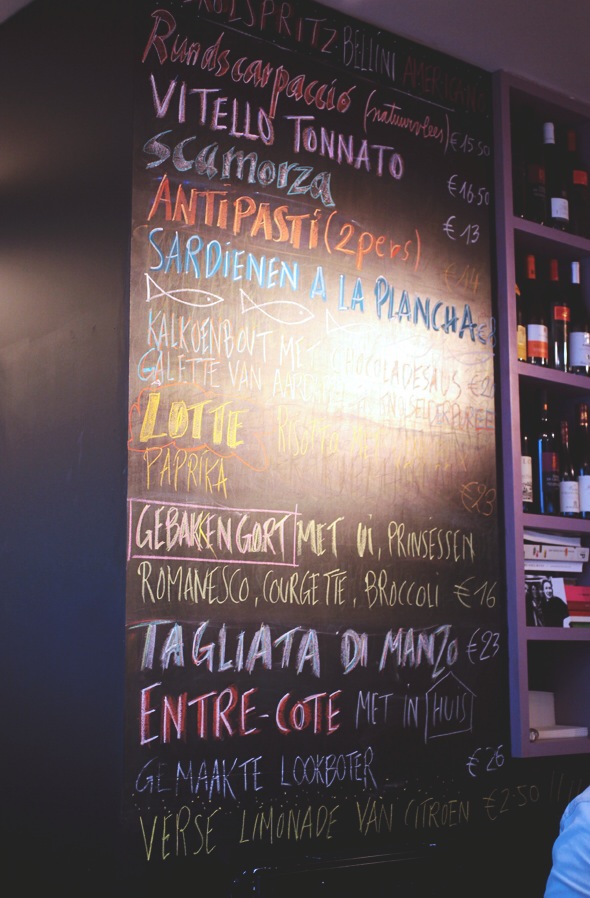 SPRITZ · BELLINI AMERICANO
Rundscarpaccio (natuurvlees) €15.50
VITELLO TONNATO €16.50
Scamorza €13
ANTIPASTI (2pers) €14
SARDIENEN A LA PLANCHA €
KALKOENBOUT MET CHOCOLADESAUS
GALETTE VAN
LOTTE
PAPRIKA €23
GEBAKKEN GORT MET UI, PRINSESSEN
ROMANESCO, COURGETTE, BROCCOLI €16
TAGLIATA DI MANZO €23
ENTRE-COTE MET IN HUIS
GEMAAKTE LOOKBOTER €26
VERSE LIMONADE VAN CITROEN €2.50